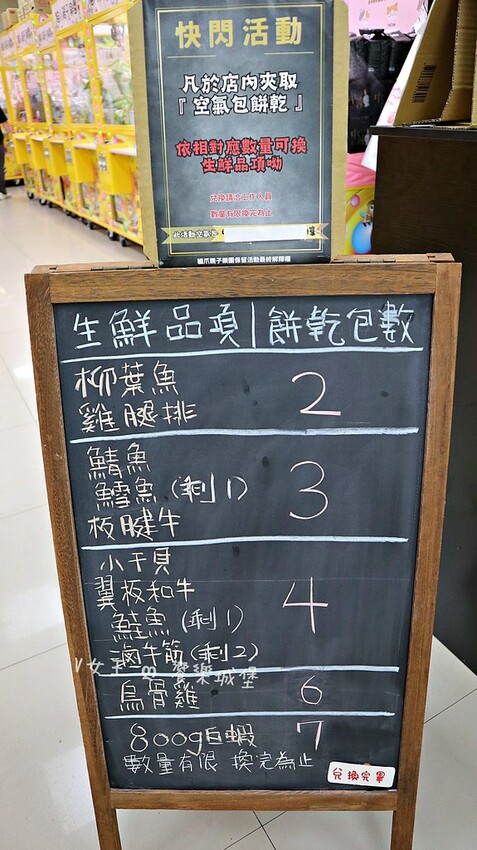 快閃活動
凡於店內夾取
『空氣包餅乾』
依相對應數量可換
生鮮品項呦
兌換請洽工作人員
數量有限換完為止
此活動空氣包
貓爪親子樂園保留活動最終解釋權
生鮮品項|餅乾包數
柳葉魚
雞腿排
2
鯖魚
鱈魚(剩1)
板腱牛
3
小干貝
翼板和牛
鮭魚(剩1)
滷牛筋(剩2)
4
烏骨雞
6
800g白蝦
7
數量有限 換完為止
兌換完畢
饗樂城堡